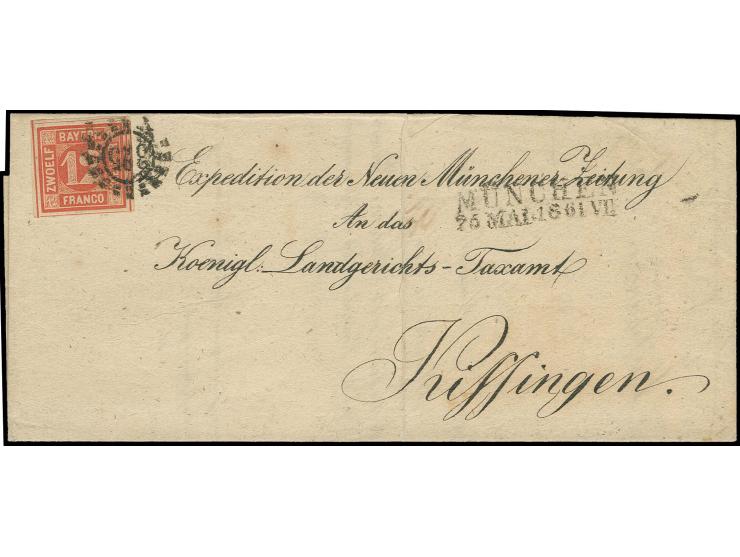 BAYERN
ZWOELF
12
FRANCO
Expedition der Neuen Münchener-Zeitung
MÜNCHEN
25 MAI. 1861 VII
An das
Koenigl: Landgerichts-Taxamt
Kissingen.